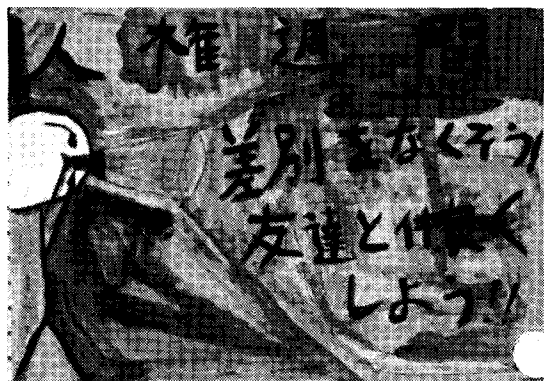 人権週間
差別をなくそう!
友達と仲良く
しよう!!